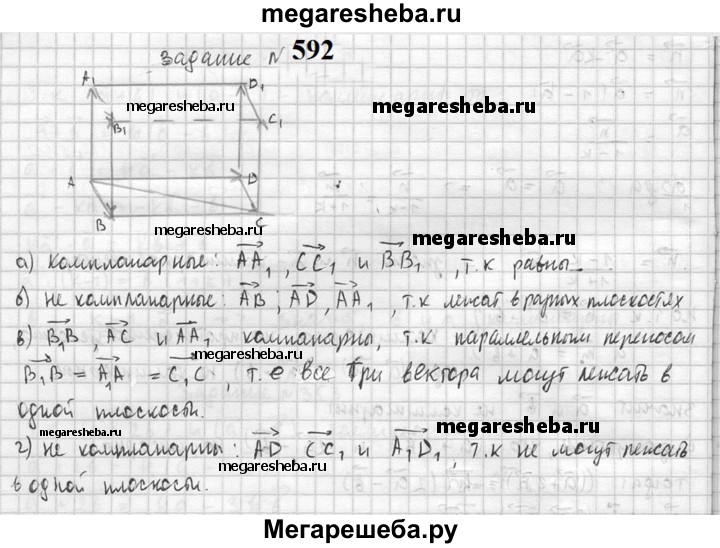 megaresheba.ru
задание N 592
A₁ D₁
megaresheba.ru
megaresheba.ru
B₁ C₁
A D
B C
megaresheba.ru
megaresheba.ru
а) компланарные: AA₁, CC₁ и BB₁, т.к равны
б) не компланарные: AB; AD, AA₁, т.к лежат в разных плоскостях
в) B₁B, AC и AA₁ компанарны, т.к параллельным переносом
megaresheba.ru
B₁B = A₁A = C₁C, т.е все три вектора могут лежать в
одной плоскости.
megaresheba.ru
megaresheba.ru
г) не компланарны: AD CC₁ и A₁D₁, т.к не могут лежать
megaresheba.ru
в одной плоскости.
Мегарешеба.ру